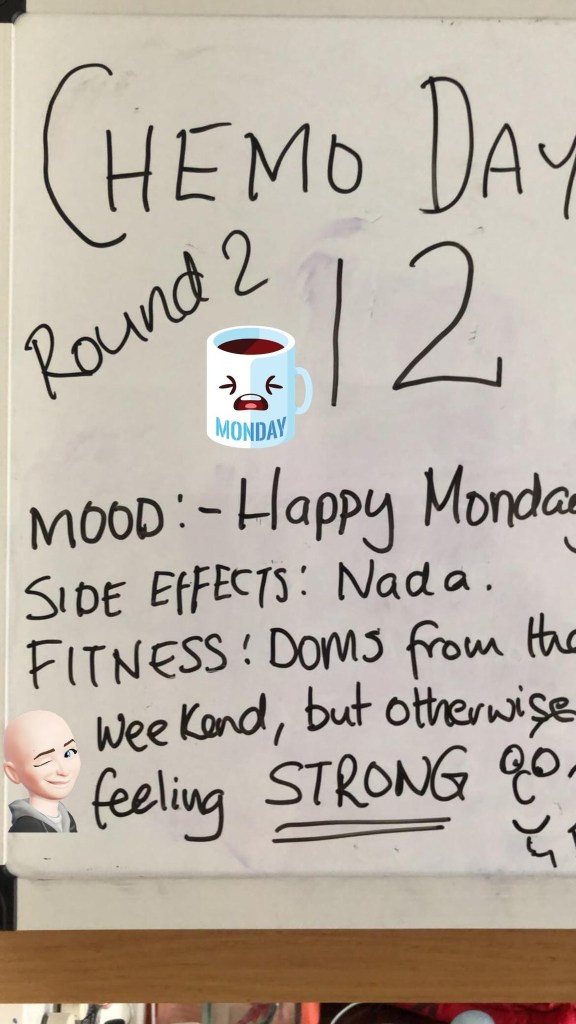 CHEMO DAY
Round 2
12
MONDAY
MOOD:- Happy Monday
SIDE EFFECTS: Nada.
FITNESS: DOMS from the
weekend, but otherwise
feeling STRONG